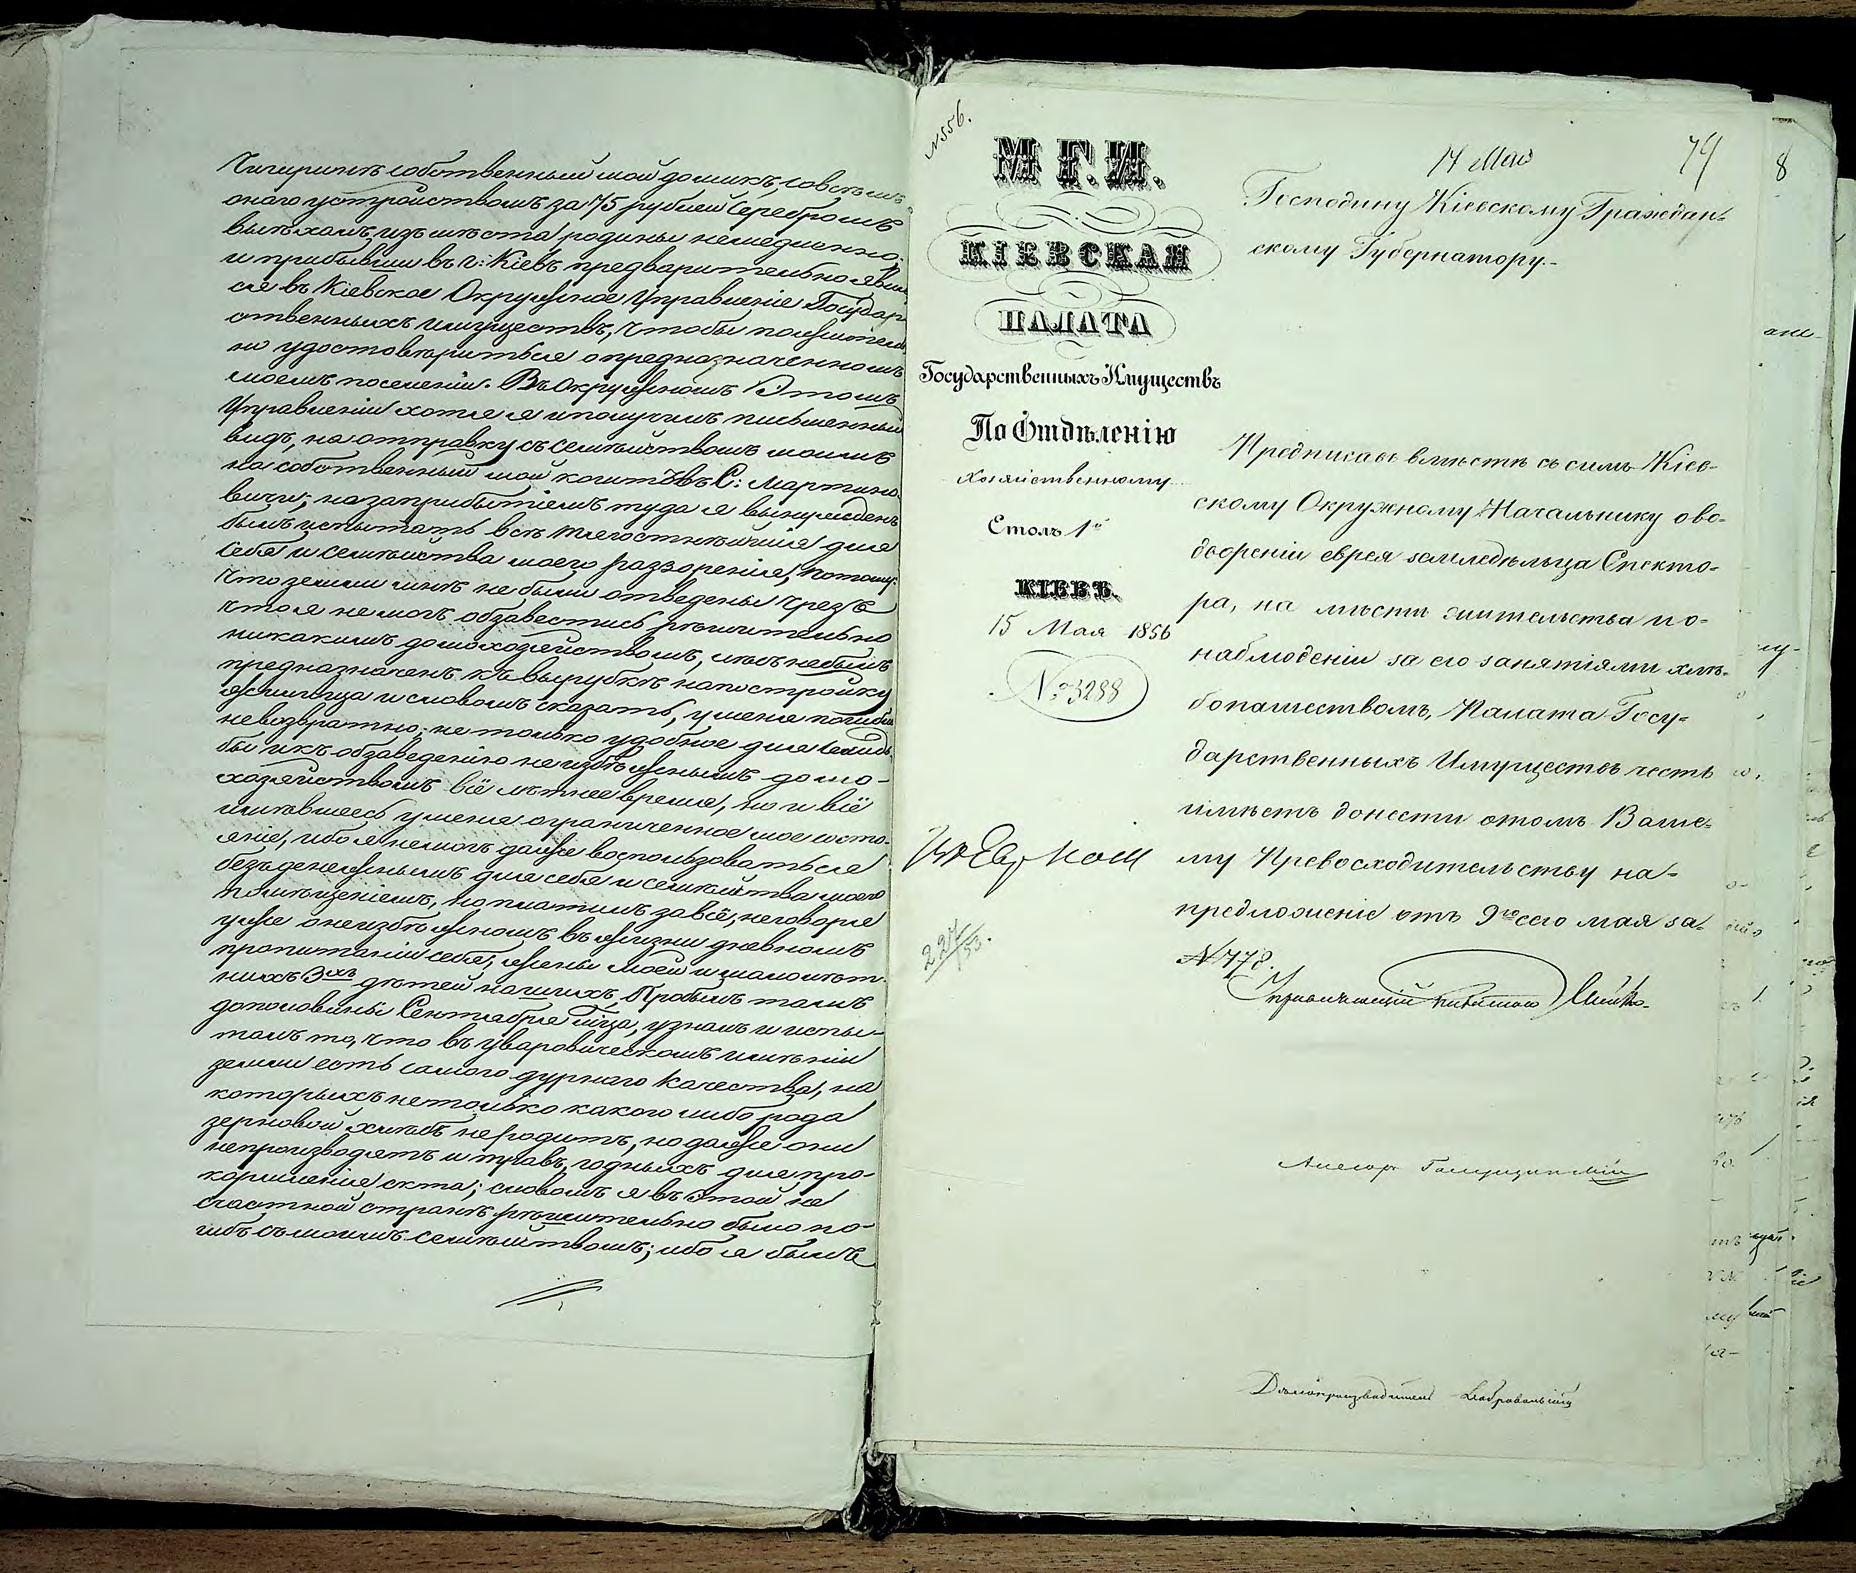 Чигиринѣ собственный мой домикъ, совсѣмъ
онаго устройствомъ за 75 рублей серебромъ
выѣхалъ изъ мѣста родины немедленно
и прибывши въ г: Кіевъ предварительно явил
ся въ Кіевское Окружное Управленіе Государ
ственныхъ имуществъ, чтобы положитель
но удостовѣриться о предназначенномъ
моемъ поселеніи. Въ Окружномъ Этомъ
Управленіи хотя я и получилъ письменный
видъ, на отправку съ семѣйствомъ моимъ
на собственный мой коштъ въ С: Мартино
вичи; но заприбытіемъ туда я вынужденъ
былъ испытать всѣ тягостнѣйшія для
себя и семѣйства моего разоренія, потому
что земли мнѣ не были отведены чрезъ
что я не могъ обзавестись рѣшительно
никакимъ домохозяйствомъ, лѣсъ небылъ
предназначенъ къ вырубкѣ на постройку
жилища и словомъ сказать, у меня погибли
невозвратно; не только удобное для
бы и къ обзаведенію неизбѣжнымъ домо-
хозяйствомъ всё лѣтнее время, но и всё
имѣвшееся у меня ограниченное мое состо-
яніе, ибо я немогъ даже воспользоваться
безъденежнымъ для себя и семѣйства моего
помѣщеніемъ, но платилъ за всё, неговоря
уже о неизбѣжномъ въ жизни дневномъ
пропитаніи себя, жены моей и малолѣт-
нихъ 3хъ дѣтей нашихъ. Пробылъ тамъ
дополовины Сентября м-ца, узналъ и испы-
талъ то, что въ Уваровическомъ имѣніи
земли есть самого дурнаго качества, на
которыхъ нетолько какого либо рода
зерновой хлѣбъ неродитъ, но даже они
непроизводятъ и травъ, годныхъ для про-
кормленія скта; словомъ я въ этой не
счастной странѣ рѣшительно было по-
гибъ съ моимъ семѣйствомъ; ибо я былъ
N 556.
М. Г. И.
КІЕВСКАЯ
ПАЛАТА
Государственныхъ Имуществъ
По Отдѣленію
Хозяйственному
Столъ 1й
КІЕВЪ.
15 Мая 1856
№ 3288
227/53.
17 Мая
79
8
Господину Кіевскому Граждан-
скому Губернатору.-
Предписавъ вмѣстѣ съ симъ Кіев-
скому Окружному Начальнику о во-
двореніи еврея земледѣльца Спекто-
ра, на мѣстѣ жительства и о-
наблюденіи за его занятіями хлѣ-
бопашествомъ, Палата Госу-
дарственныхъ Имуществъ честь
имѣетъ донести отомъ Ваше-
му Превосходительству на-
предложеніе отъ 9го сего мая за-
№ 478.
Управляющій Палатою
Ассесоръ
Дѣлопроизводитель